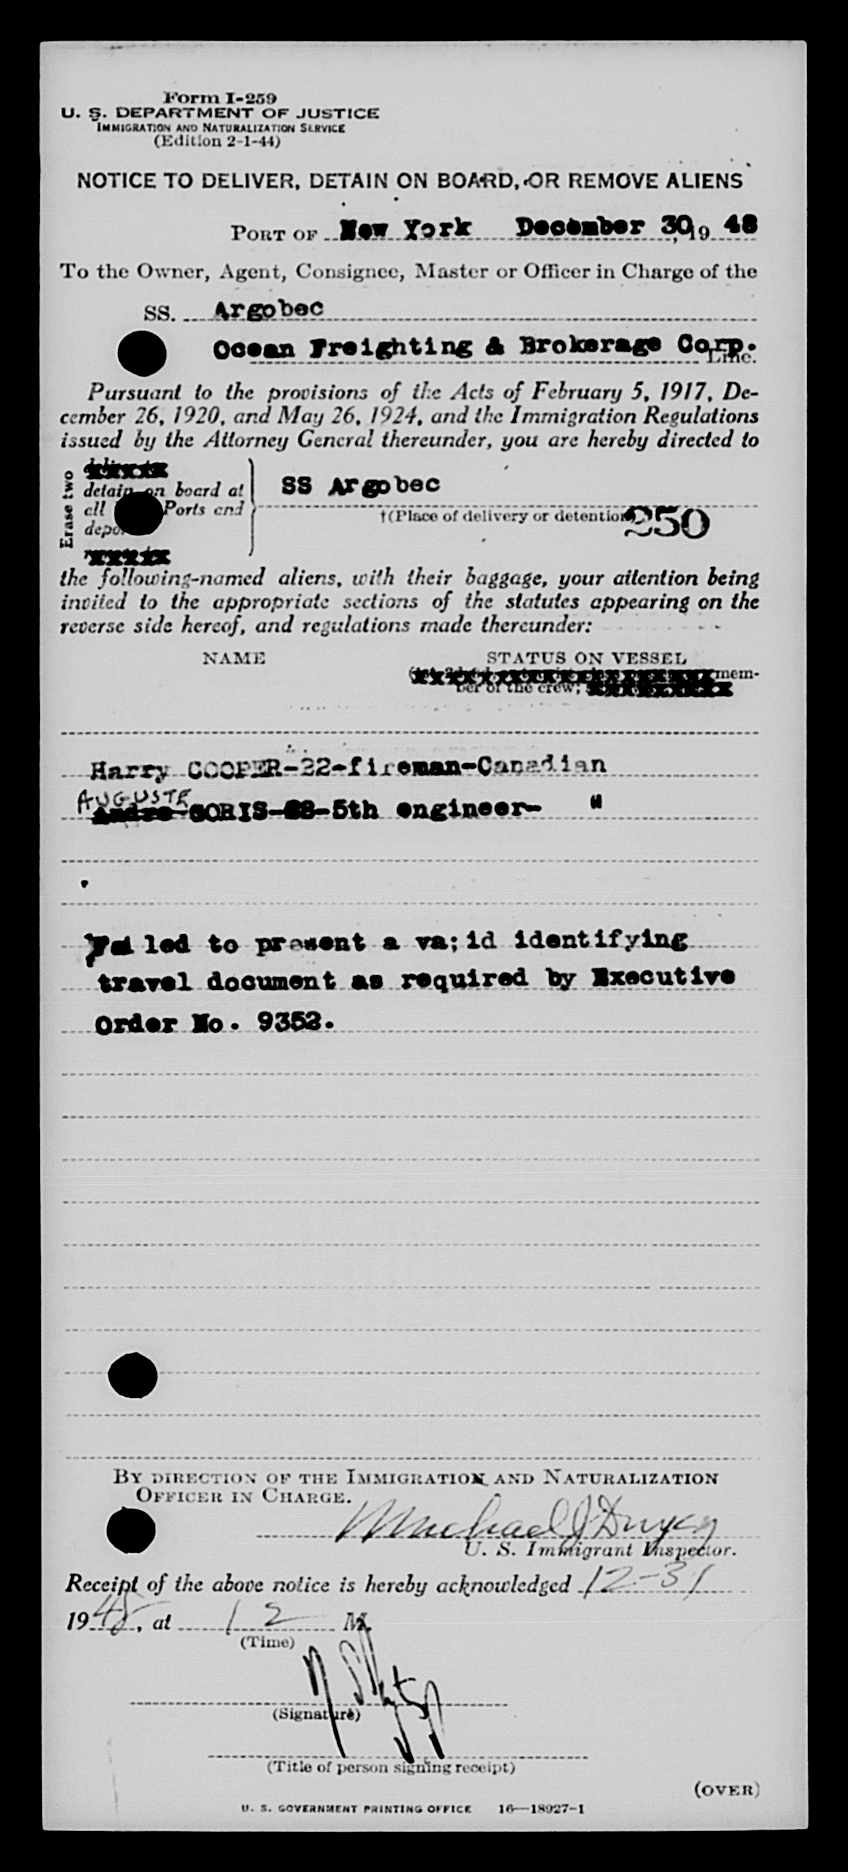 Form I-259
U. S. DEPARTMENT OF JUSTICE
IMMIGRATION AND NATURALIZATION SERVICE
(Edition 2-1-44)
NOTICE TO DELIVER, DETAIN ON BOARD, OR REMOVE ALIENS
PORT OF New York December 30, 19 48
To the Owner, Agent, Consignee, Master or Officer in Charge of the
SS. Argobec
Ocean Freighting & Brokerage Corp.
Line.
Pursuant to the provisions of the Acts of February 5, 1917, De-
cember 26, 1920, and May 26, 1924, and the Immigration Regulations
issued by the Attorney General thereunder, you are hereby directed to
Erase two
detain on board at
all Ports and
SS Argobec
†(Place of delivery or detention)
250
the following-named aliens, with their baggage, your attention being
invited to the appropriate sections of the statutes appearing on the
reverse side hereof, and regulations made thereunder:
NAME STATUS ON VESSEL
mem-
ber of the crew;
Harry COOPER-22-fireman-Canadian
AUGUSTE
SORIS- -5th engineer- "
Failed to present a va;id identifying
travel document as required by Executive
Order No. 9352.
BY DIRECTION OF THE IMMIGRATION AND NATURALIZATION
OFFICER IN CHARGE.
Michael J Dwyer
U. S. Immigrant Inspector.
Receipt of the above notice is hereby acknowledged 12-31
1948, at 12 M.
(Time)
(Signature)
(Title of person signing receipt)
(OVER)
U. S. GOVERNMENT PRINTING OFFICE 16—18927-1